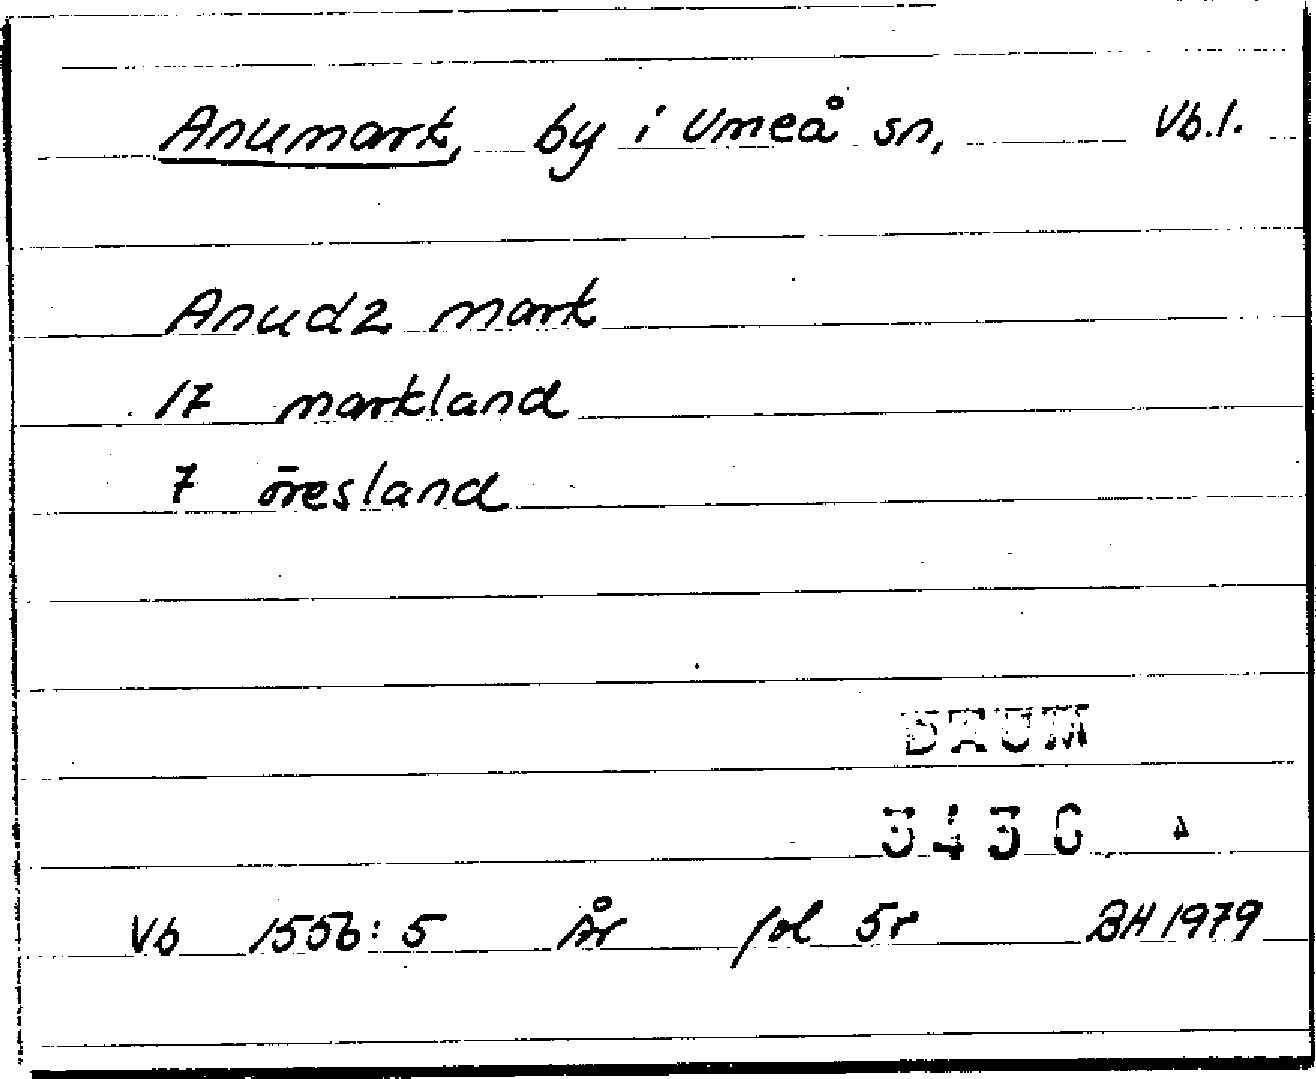 Anumark, by i Umeå sn, Vb.l.
Anudz mark
17 markland
7 öresland
DAUM
3436 A
Vb 1556:5 År fol 5r BH 1979